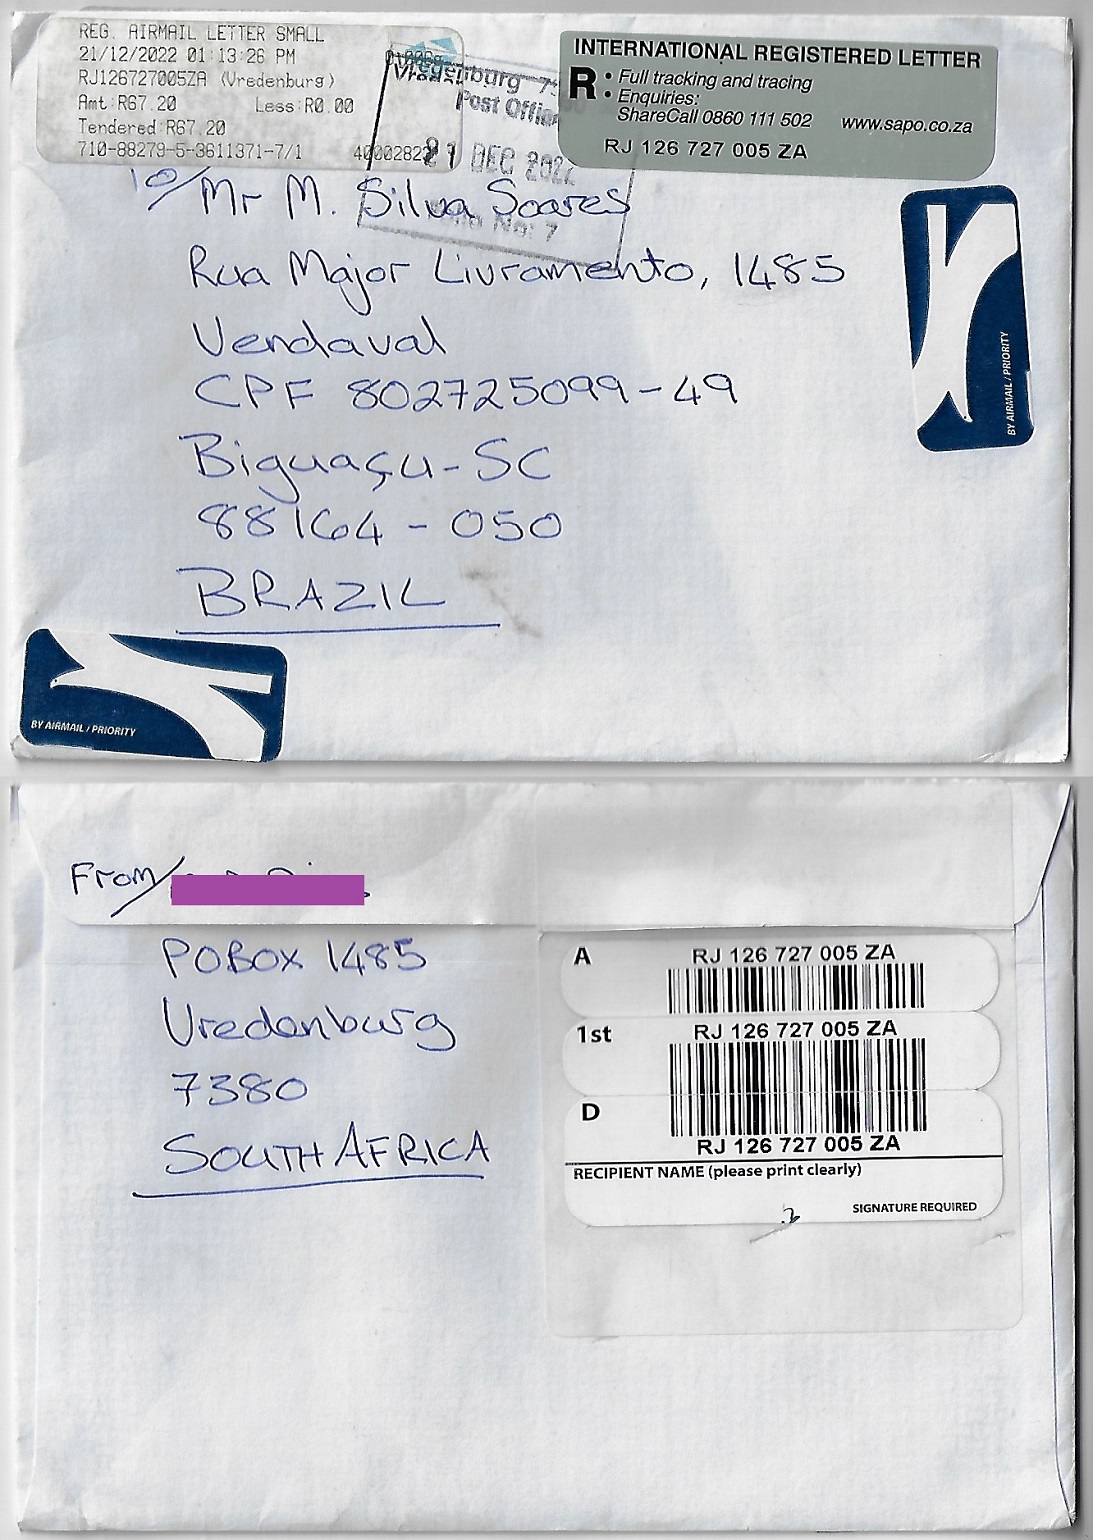 REG. AIRMAIL LETTER SMALL
21/12/2022 01:13:26 PM
RJ126727005ZA (Vredenburg)
Amt:R67.20 Less:R0.00
Tendered:R67.20
710-88279-5-3611371-7/1
Vredenburg
Post Office
21 DEC 2022
No: 7
INTERNATIONAL REGISTERED LETTER
R
• Full tracking and tracing
• Enquiries:
ShareCall 0860 111 502 www.sapo.co.za
RJ 126 727 005 ZA
BY AIRMAIL / PRIORITY
To/ Mr M. Silva Soares
Rua Major Livramento, 1485
Vendaval
CPF 802725099-49
Biguaçu-SC
88164-050
BRAZIL
BY AIRMAIL / PRIORITY
From/
PO Box 1485
Vredenburg
7380
SOUTH AFRICA
A RJ 126 727 005 ZA
1st RJ 126 727 005 ZA
D
RJ 126 727 005 ZA
RECIPIENT NAME (please print clearly)
SIGNATURE REQUIRED